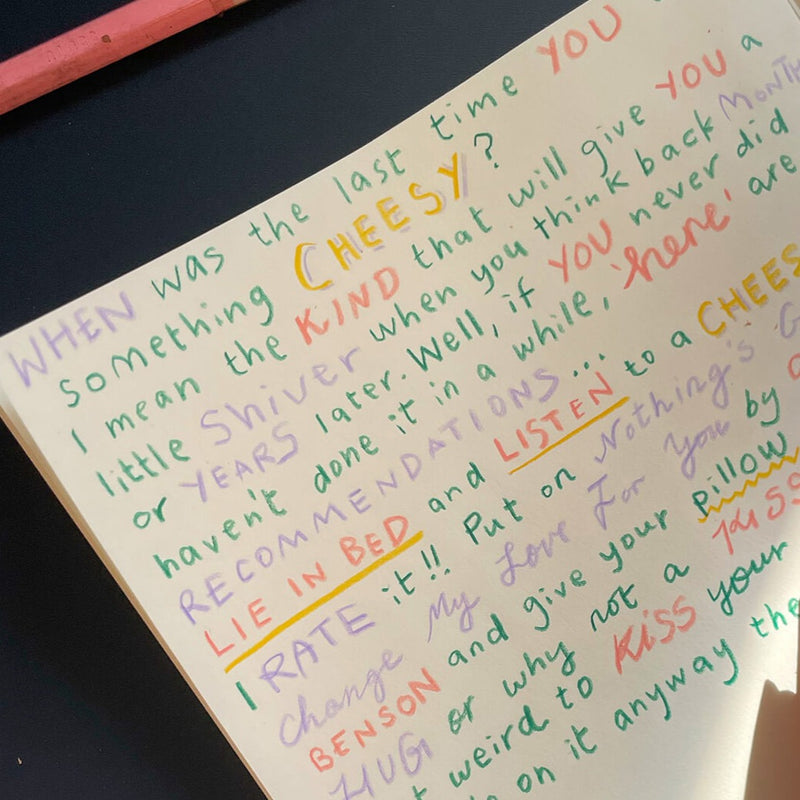 WHEN was the last time YOU
something CHEESY?
I mean the KIND that will give YOU a
little Shiver when you think back MONTH
or YEARS later. Well, if YOU never did
haven't done it in a while, 'here' are
RECOMMENDATIONS...
LIE IN BED and LISTEN to a CHEES
I RATE it!! Put on Nothing's G
change My Love For You by
BENSON and give your pillow
HUG or why not a KISS
weird to KiSS your
on it anyway the